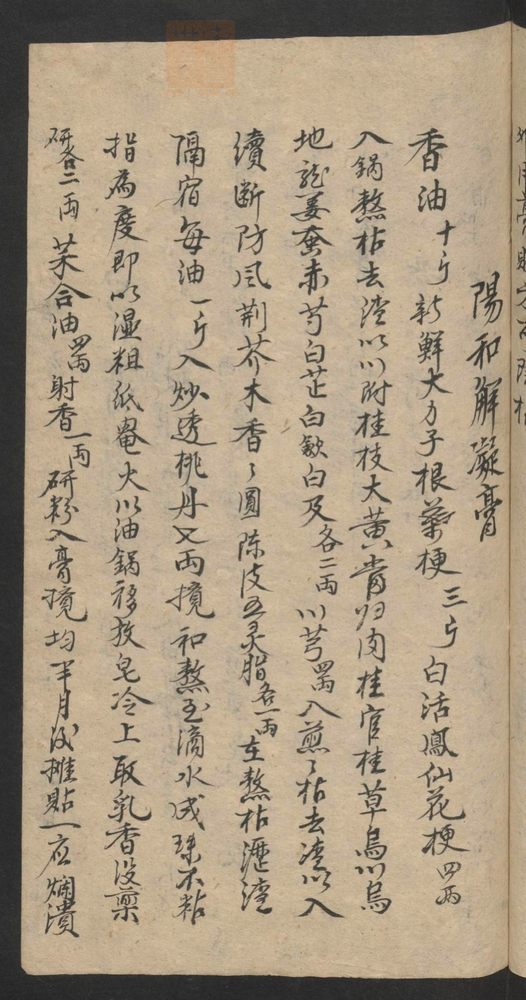 陽和解凝膏
香油十斤新鮮大力子根葉梗三斤白活鳳仙花梗四兩
入鍋熬枯去渣以川附桂枝大黃當归肉桂官桂草烏川烏
地龍姜蚕赤芍白芷白歛白及各二兩川芎四兩入煎〻枯去渣以入
續断防风荆芥木香〻圓陈皮五灵脂各一兩在熬枯瀝渣
隔宿每油一斤入炒透桃丹七兩攪和熬至滴水成珠不粘
指為度即以湿粗紙罨火以油鍋移放皂冷上取乳香没藥
研各二兩 苏合油四兩射香一兩研粉入膏攪均半月後摊貼一应爛潰